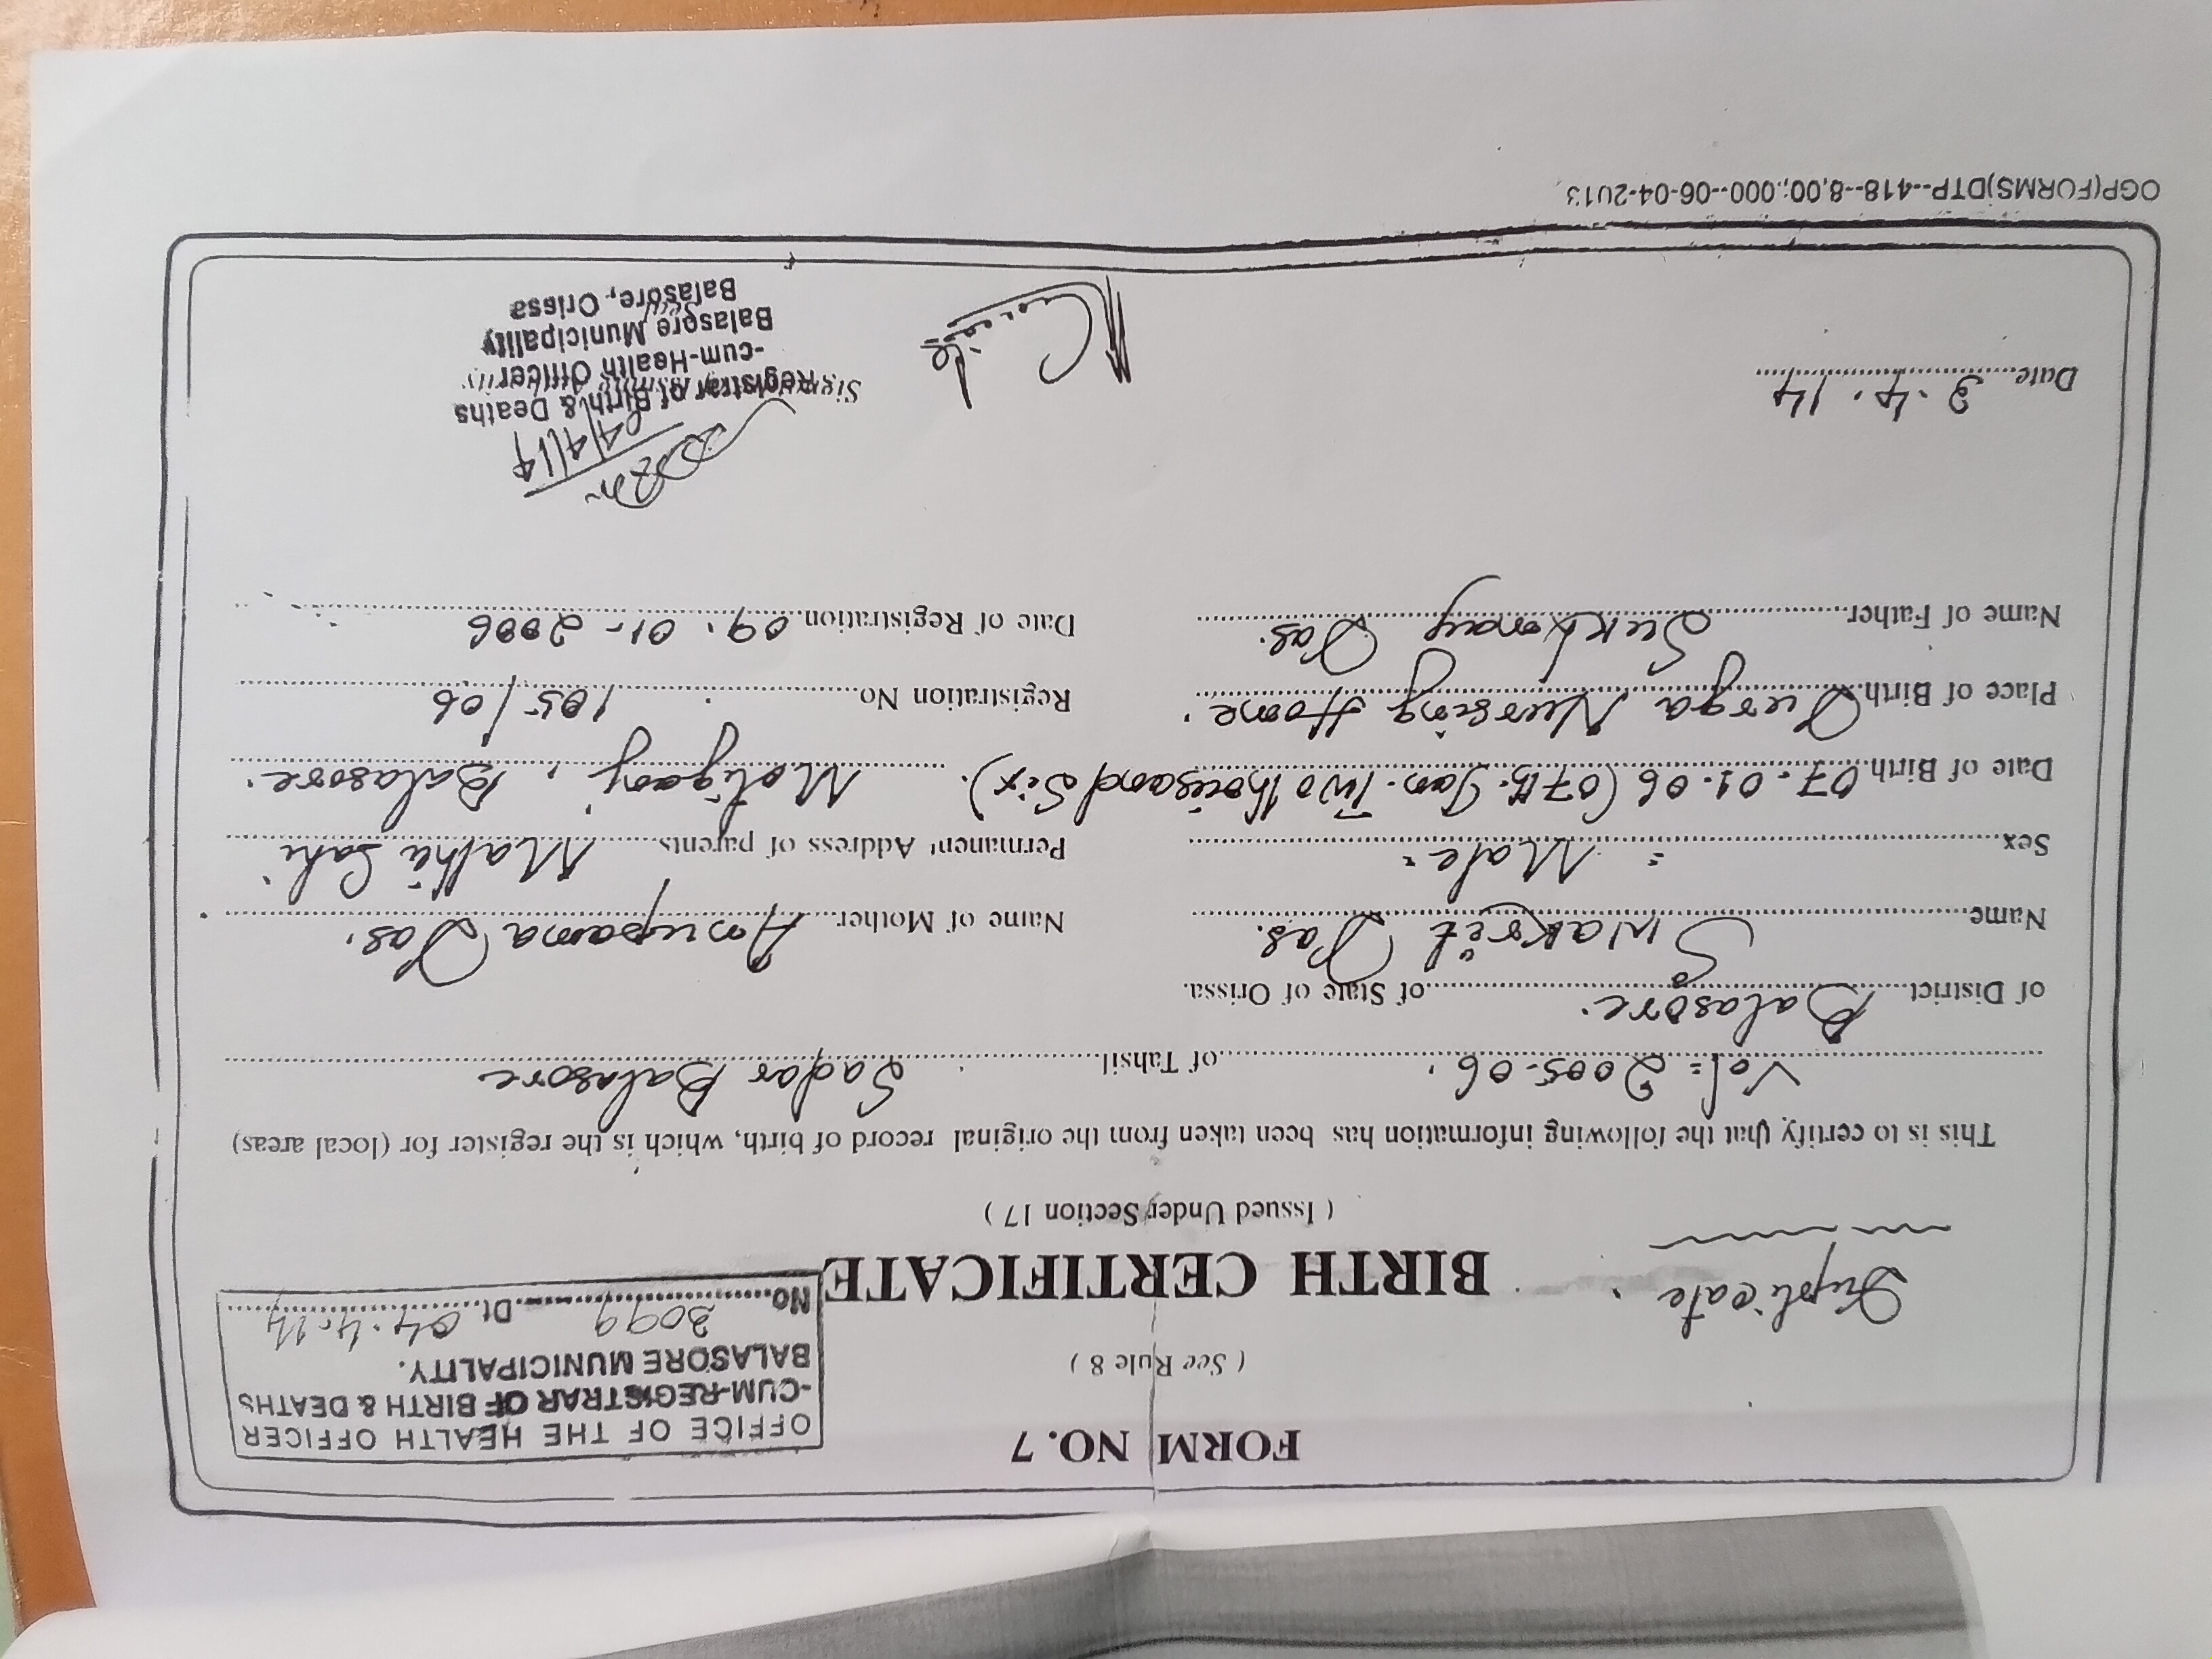 FORM NO. 7
( See Rule 8 )
OFFICE OF THE HEALTH OFFICER
-CUM-REGISTRAR OF BIRTH & DEATHS
BALASORE MUNICIPALITY.
No. 3099 Dt. 04.4.14
Duplicate.
BIRTH CERTIFICATE
( Issued Under Section 17 )
This is to certify that the following information has been taken from the original record of birth, which is the register for (local areas)
Vol = 2005-06. of Tahsil Sadar Balasore
of District Balasore. of State of Orissa.
Name Swakrit Das.
Name of Mother Anupama Das.
Sex = Male.
Permanent Address of parents Mathi Sahi
Date of Birth 07-01-06 (07th. Jan. Two thousand Six).
Motiganj, Balasore.
Place of Birth Durga Nursing Home.
Registration No. 105/06
Name of Father Sukhmay Das.
Date of Registration 09.01-2006
Date 3.4.14
04/4/14
Registrar of Birth & Deaths
-cum-Health Officer
Balasore Municipality
Balasore, Orissa
OGP(FORMS)DTP--418--8,00,000--06-04-2013